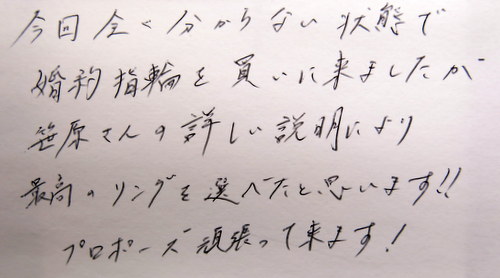 今回全く分からない状態で
婚約指輪を買いに来ましたが
笹原さんの詳しい説明により
最高のリングを選べたと思います!!
プロポーズ頑張って来ます!